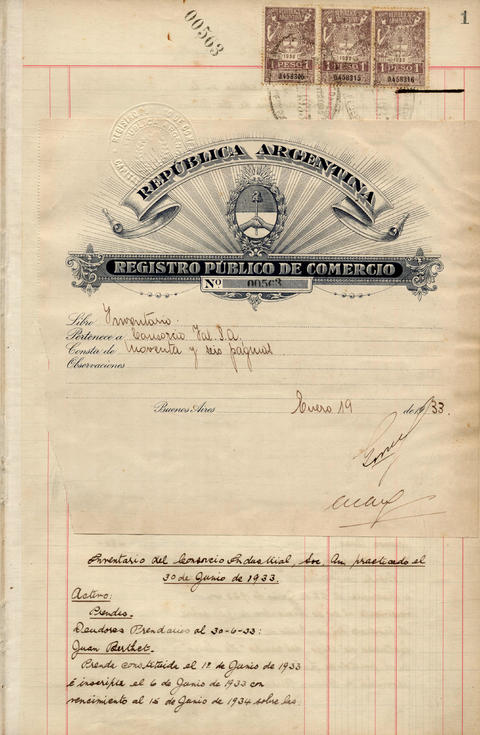 00563
1
REPÚBLICA ARGENTINA
1 PESO 1
1 PESO 1
1 PESO 1
0458315
0458316
REPÚBLICA ARGENTINA
REGISTRO PÚBLICO DE COMERCIO
No 00563
Libro Inventario.
Pertenece a Consorcio S.A.
Consta de Noventa y seis páginas
Observaciones
Buenos Aires Enero 19 de 1933.
Inventario del Consorcio Industrial, Soc. An. practicado el
30 de Junio de 1933.
Activo:
Prendas.
Deudores Prendarios al 30-6-33:
Juan Berthet.
Prenda constituida el 1º de Junio de 1933
é inscripta el 6 de Junio de 1933 con
vencimiento al 15 de Junio de 1934 sobre las